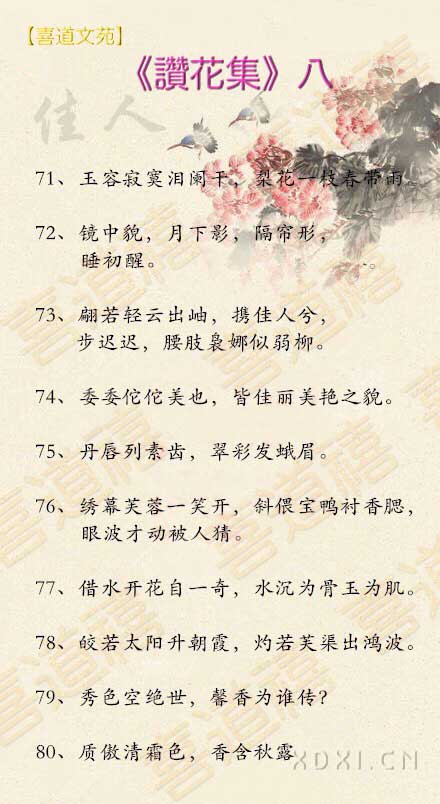 【喜道文苑】
《讚花集》八
佳人
71、玉容寂寞泪阑干，梨花一枝春带雨
72、镜中貌，月下影，隔帘形，
睡初醒。
73、翩若轻云出岫，携佳人兮，
步迟迟，腰肢袅娜似弱柳。
74、委委佗佗美也，皆佳丽美艳之貌。
75、丹唇列素齿，翠彩发蛾眉。
76、绣幕芙蓉一笑开，斜偎宝鸭衬香腮，
眼波才动被人猜。
77、借水开花自一奇，水沉为骨玉为肌。
78、皎若太阳升朝霞，灼若芙渠出鸿波。
79、秀色空绝世，馨香为谁传？
80、质傲清霜色，香含秋露
XDXI.CN